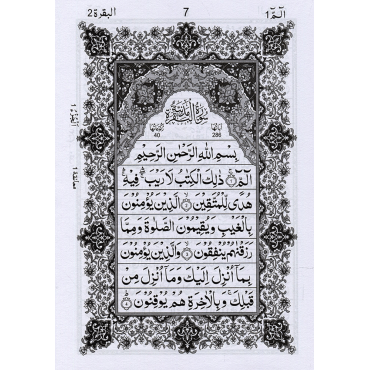 الٓمّٓ ١
7
البقرة ٢
سُوْرَةُ الْبَقَرَةِ مَدَنِيَّةٌ
اٰيَاتُهَا
286
رُكُوْعَاتُهَا
40
بِسْمِ اللّٰهِ الرَّحْمٰنِ الرَّحِيْمِ
الٓمّٓ ۚ﴿۱﴾ ذٰلِكَ الْكِتٰبُ لَا رَيْبَ ۛۚ فِيْهِ ۛۚ
هُدًى لِّلْمُتَّقِيْنَ ۙ﴿۲﴾ الَّذِيْنَ يُؤْمِنُوْنَ
بِالْغَيْبِ وَيُقِيْمُوْنَ الصَّلٰوةَ وَمِمَّا
رَزَقْنٰهُمْ يُنْفِقُوْنَ ۙ﴿۳﴾ وَالَّذِيْنَ يُؤْمِنُوْنَ
بِمَآ اُنْزِلَ اِلَيْكَ وَمَآ اُنْزِلَ مِنْ
قَبْلِكَ ۚ وَبِالْاٰخِرَةِ هُمْ يُوْقِنُوْنَ ؕ﴿۴﴾